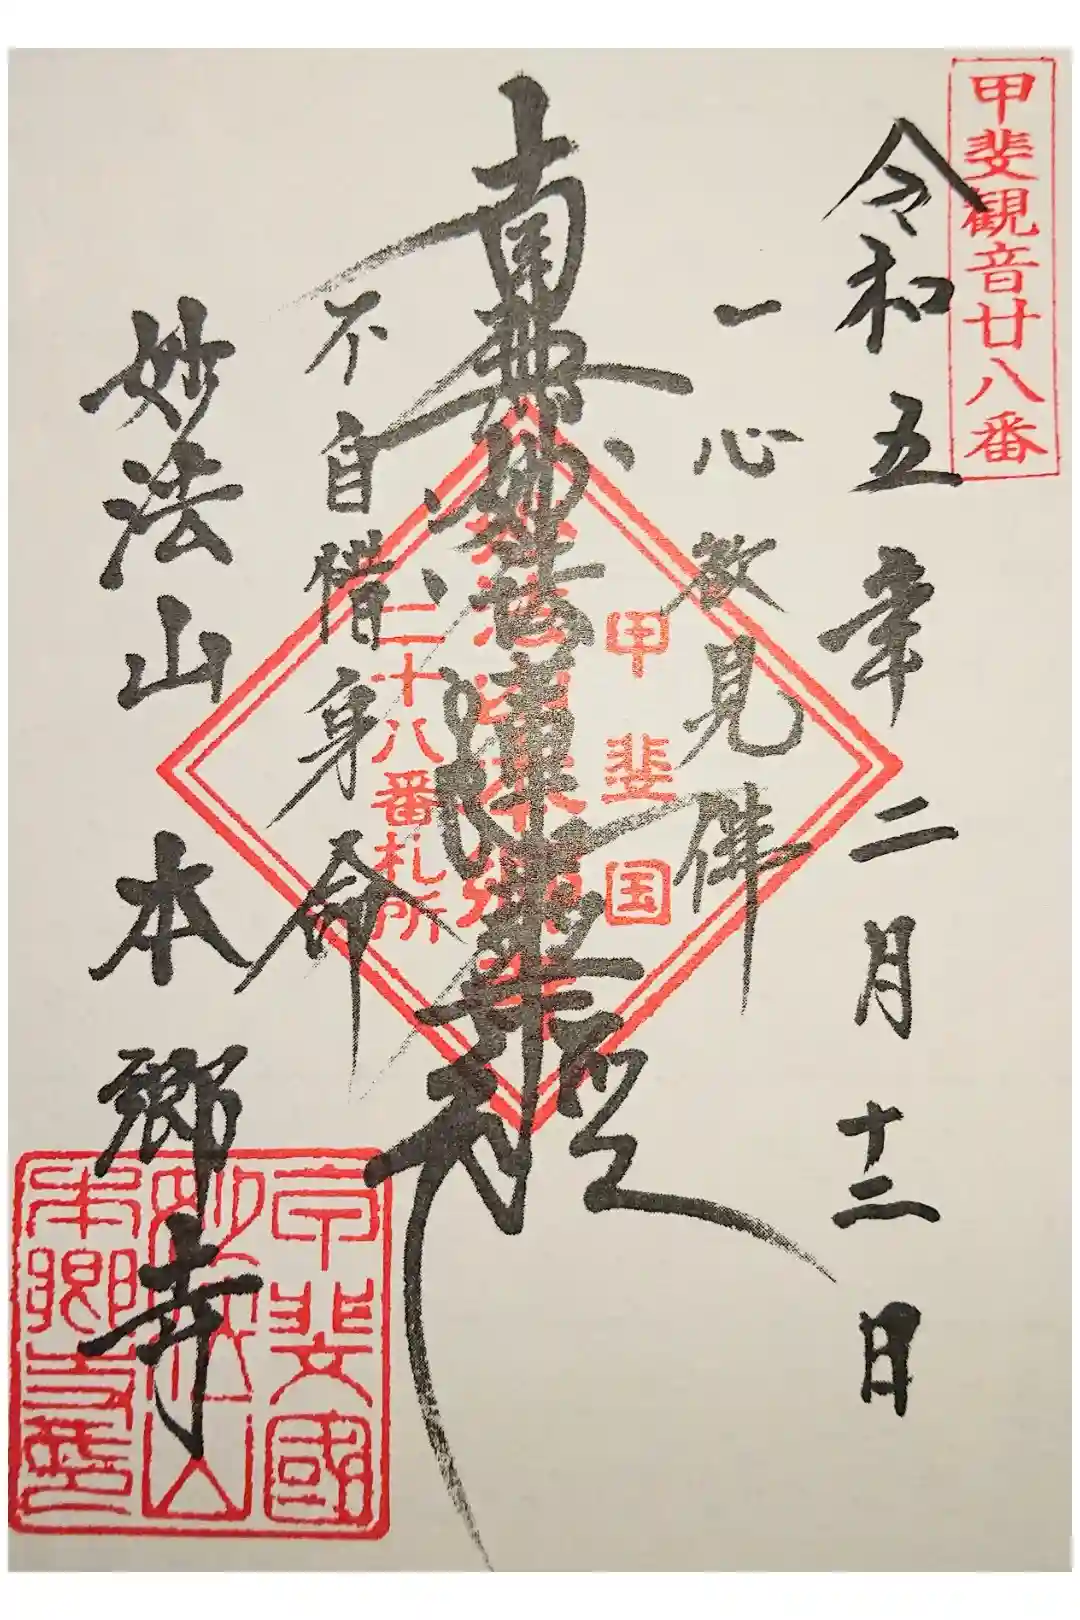 甲斐観音廿八番
令和五年二月十二日
一心欲見佛
甲斐国
南無妙法蓮華経
二十八番札所
不自惜身命
妙法山本郷寺
甲斐國
妙法山
本郷寺